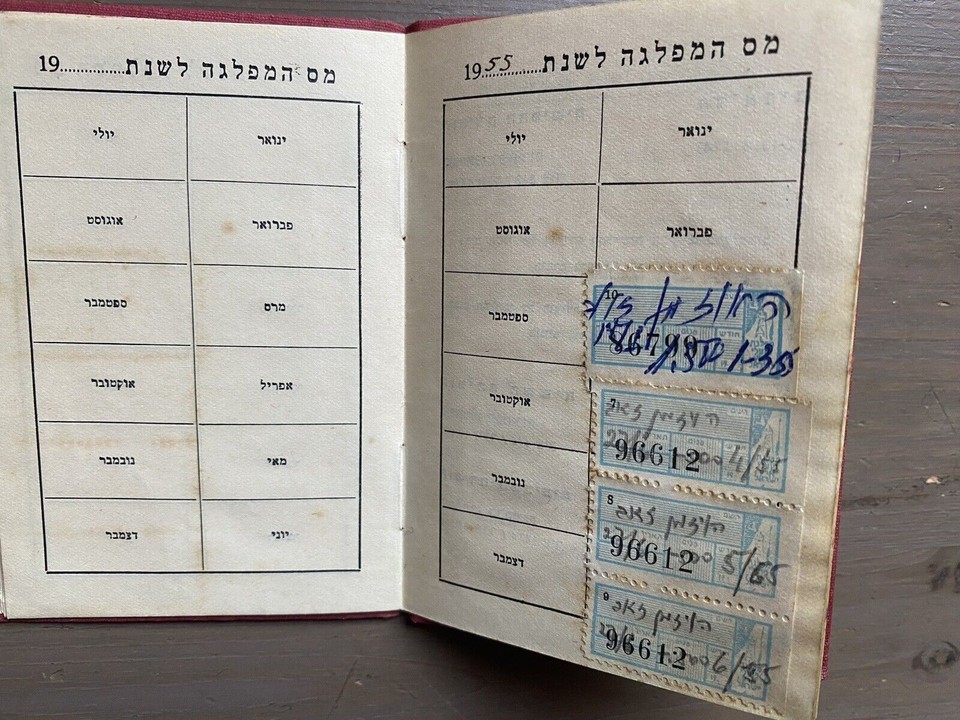 מס המפלגה לשנת...............19
ינואר
יולי
פברואר
אוגוסט
מרס
ספטמבר
אפריל
אוקטובר
מאי
נובמבר
יוני
דצמבר
מס המפלגה לשנת...............1955
ינואר
יולי
פברואר
אוגוסט
ספטמבר
אוקטובר
נובמבר
דצמבר
10
1-3
7
96612
4/55
8
96612
5/55
9
96612
6/55